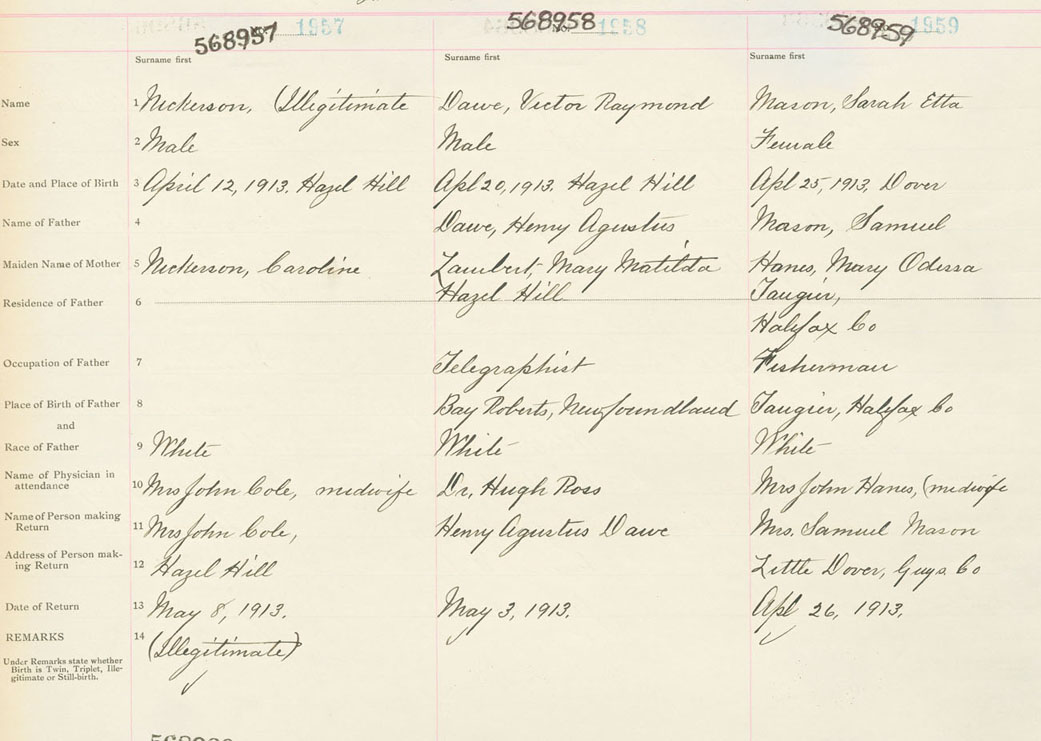 568957 No. 1957 568958 No. 1958 568959 1959
Surname first Surname first Surname first
Name 1 Nickerson, (Illegitimate Dawe, Victor Raymond Mason, Sarah Etta
Sex 2 Male Male Female
Date and Place of Birth 3 April 12, 1913. Hazel Hill Apl 20, 1913. Hazel Hill Apl 25, 1913, Dover
Name of Father 4 Dawe, Henry Agustus Mason, Samuel
Maiden Name of Mother 5 Nickerson, Caroline Lambert, Mary Matilda Hanes, Mary Odessa
Residence of Father 6 Hazel Hill Taugier,
Halifax Co
Occupation of Father 7 Telegraphist Fisherman
Place of Birth of Father 8 Bay Roberts, Newfoundland Taugier, Halifax Co
and
Race of Father 9 White White White
Name of Physician in
attendance 10 Mrs John Cole, midwife Dr, Hugh Ross Mrs John Hanes, (midwife
Name of Person making
Return 11 Mrs John Cole, Henry Agustus Dawe Mrs. Samuel Mason
Address of Person mak-
ing Return 12 Hazel Hill Little Dover, Guys. Co
Date of Return 13 May 8, 1913. May 3, 1913. Apl 26, 1913.
REMARKS 14 (Illegitimate)
Under Remarks state whether
Birth is Twin, Triplet, Ille-
gitimate or Still-birth.